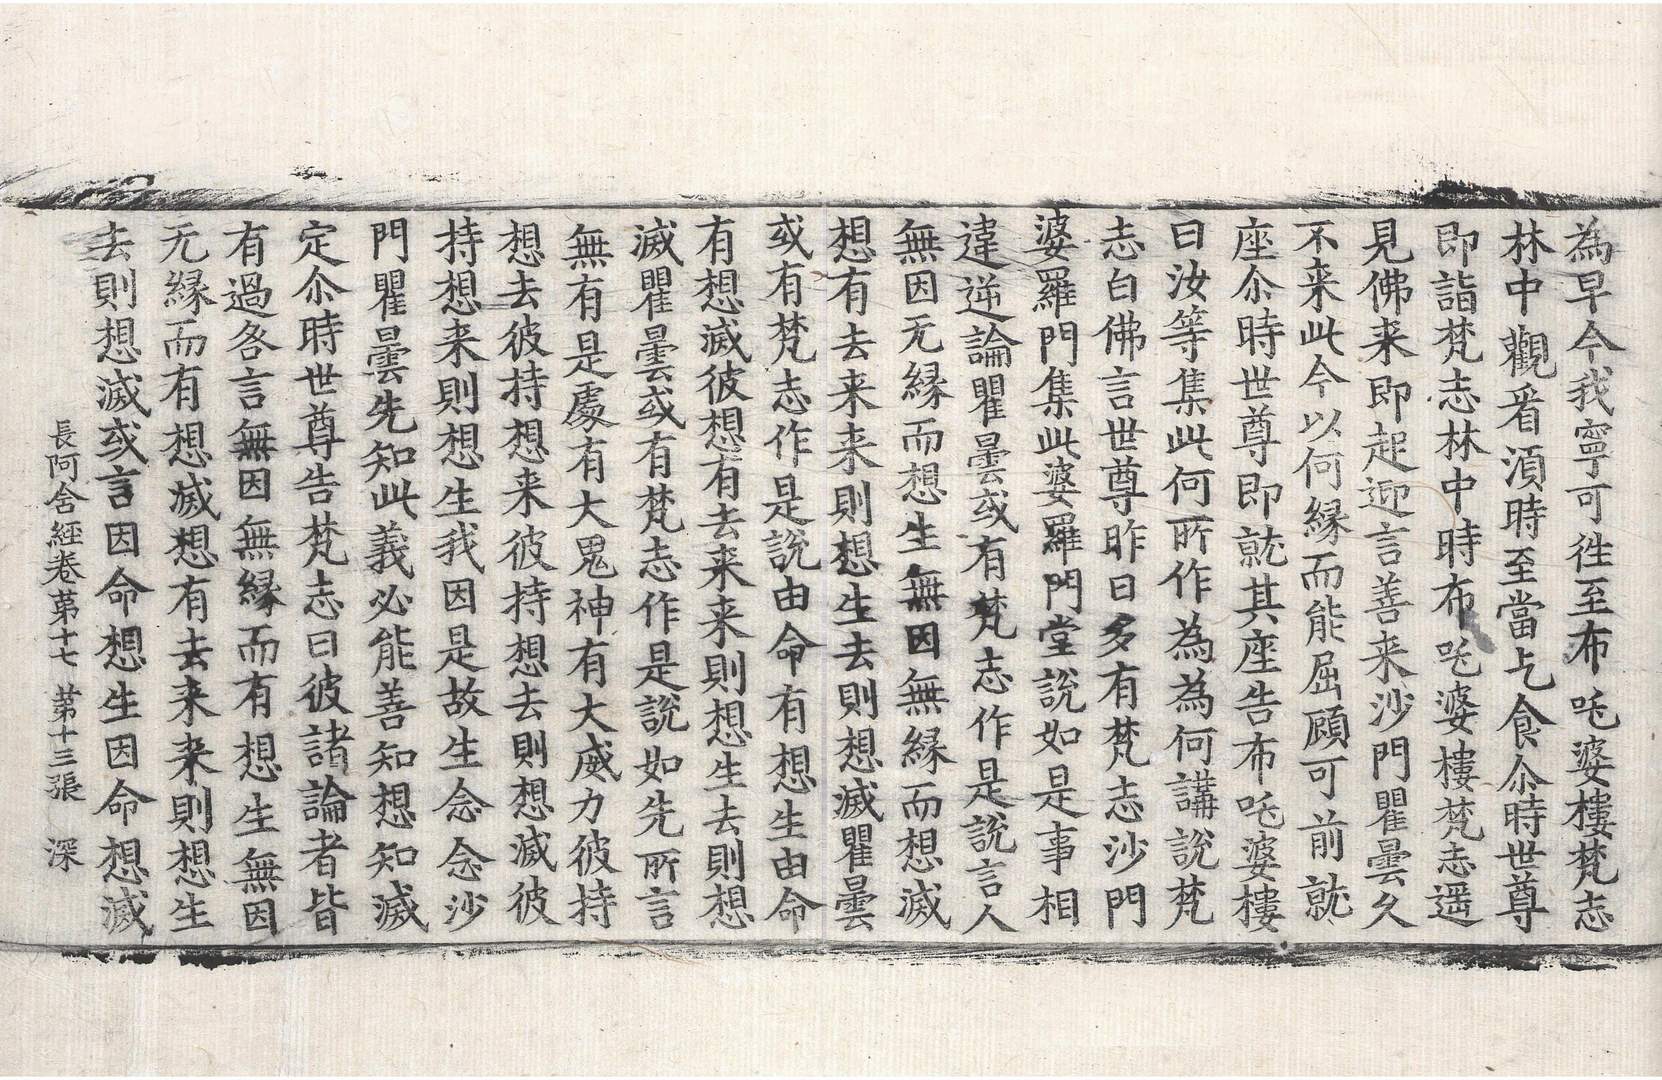 為早今我寧可徃至布吒婆樓梵志
林中觀看湏時至當乞食尒時世尊
即詣梵志林中時布吒婆樓梵志遥
見佛来即起迎言善来沙門瞿曇久
不来此今以何縁而能屈顧可前就
座尒時世尊即就其座告布吒婆樓
曰汝等集此何所作為為何講說梵
志白佛言世尊昨日多有梵志沙門
婆羅門集此婆羅門堂說如是事相
違逆論瞿曇或有梵志作是說言人
無因无縁而想生無因無縁而想滅
想有去来来則想生去則想滅瞿曇
或有梵志作是說由命有想生由命
有想滅彼想有去来来則想生去則想
滅瞿曇或有梵志作是說如先所言
無有是處有大鬼神有大威力彼持
想去彼持想来彼持想去則想滅彼
持想来則想生我因是故生念念沙
門瞿曇先知此義必能善知想知滅
定尒時世尊告梵志曰彼諸論者皆
有過咎言無因無縁而有想生無因
无縁而有想滅想有去来来則想生
去則想滅或言因命想生因命想滅
長阿含經卷苐十七 苐十三張 深